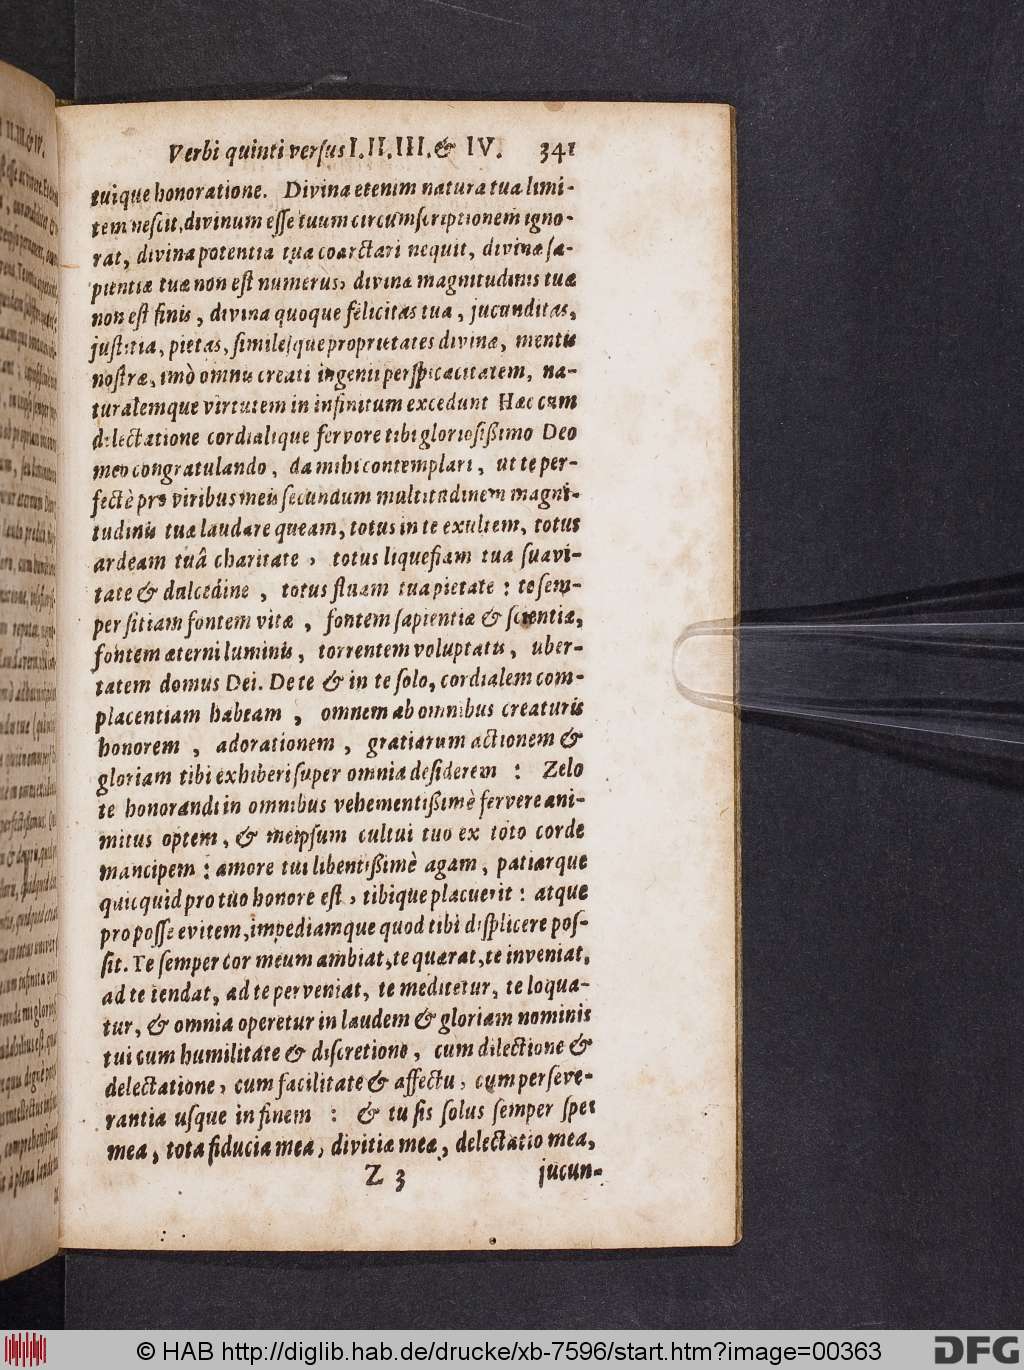 Verbi quinti versus I. II. III. & IV. 341
tuique honoratione. Divina etenim natura tua limi-
tem nescit, divinum esse tuum circumscriptionem igno-
rat, divina potentia tua coarctari nequit, divinæ sa-
pientiæ tuæ non est numerus, divinæ magnitudinis tuæ
non est finis, divina quoque felicitas tua, jucunditas,
justitia, pietas, similesque proprietates divinæ, mentis
nostræ, imò omnis creati ingenii perspicacitatem, na-
turalemque virtutem in infinitum excedunt Hæc cum
dilectatione cordialique fervore tibi gloriosißimo Deo
meo congratulando, da mihi contemplari, ut te per-
fectè pro viribus meis secundum multitudinem magni-
tudinis tuæ laudare queam, totus in te exultem, totus
ardeam tuâ charitate, totus liquefiam tua suavi-
tate & dulcedine, totus fluam tua pietate: te sem-
per sitiam fontem vitæ, fontem sapientiæ & scientiæ,
fontem æterni luminis, torrentem voluptatis, uber-
tatem domus Dei. De te & in te solo, cordialem com-
placentiam habeam, omnem ab omnibus creaturis
honorem, adorationem, gratiarum actionem &
gloriam tibi exhiberi super omnia desiderem: Zelo
te honorandi in omnibus vehementißimè fervere ani-
mitus optem, & meipsum cultui tuo ex toto corde
mancipem: amore tui libentißimè agam, patiarque
quicquid pro tuo honore est, tibique placuerit: atque
pro posse evitem, impediamque quod tibi displicere pos-
sit. Te semper cor meum ambiat, te quærat, te inveniat,
ad te tendat, ad te perveniat, te meditetur, te loqua-
tur, & omnia operetur in laudem & gloriam nominis
tui cum humilitate & discretione, cum dilectione &
delectatione, cum facilitate & affectu, cum perseve-
rantia usque in finem: & tu sis solus semper spes
mea, tota fiducia mea, divitiæ meæ, delectatio mea,
Z 3 jucun-
© HAB http://diglib.hab.de/drucke/xb-7596/start.htm?image=00363
DFG